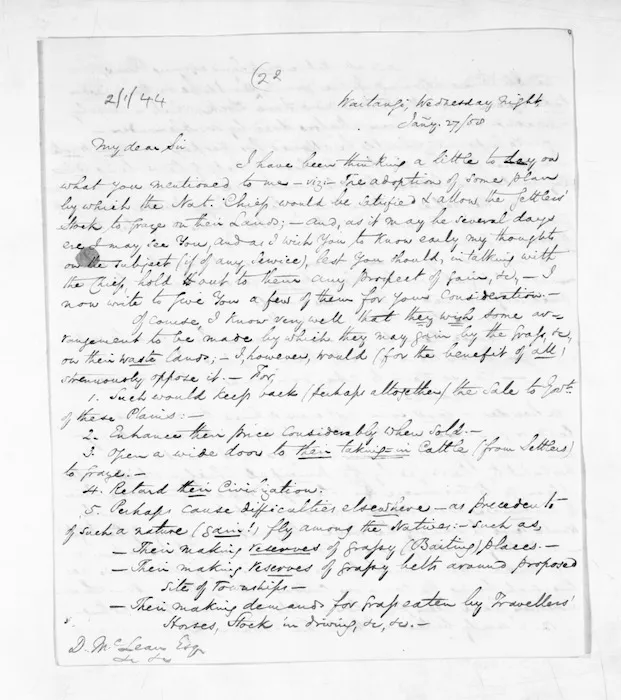 (22
2/1/44
Waitangi, Wednesday night,
Jany. 27/58
My dear Sir
I have been thinking a little to day on
what you mentioned to me – viz – The adoption of some plan
by which the Nat. Chiefs would be satisfied & allow the Settlers'
Stock to graze on their Lands; – and, as it may be several days
ere I may see You, and as I wish You to know early my thoughts
on the subject (if of any service), lest You should, in talking with
the Chiefs, hold out to them any prospect of gain, &c, – I
now write to give You a few of them for Your consideration. –
Of course I know very well that they wish some ar-
rangement to be made by which they may gain by the Grass, &c,
on their waste Lands; – I, however, would (for the benefit of all)
strenuously oppose it. – For,
1. Such would keep back (perhaps altogether) the Sale to Govt.
of these Plains: –
2. Enhance their price considerably when Sold. –
3. Open a wide door to their taking-in Cattle (from Settlers)
to graze. –
4. Retard their Civilization.
5. Perhaps cause difficulties elsewhere – as precedents
of such a nature (gain!) fly among the Natives: – such as,
– Their making reserves of grassy (Baiting) places. –
– Their making reserves of grassy belts around proposed
Site of Townships –
– Their making demands for Grass eaten by Travellers'
Horses, Stock in driving, &c, &c. –
D. McLean Esq
&c &c